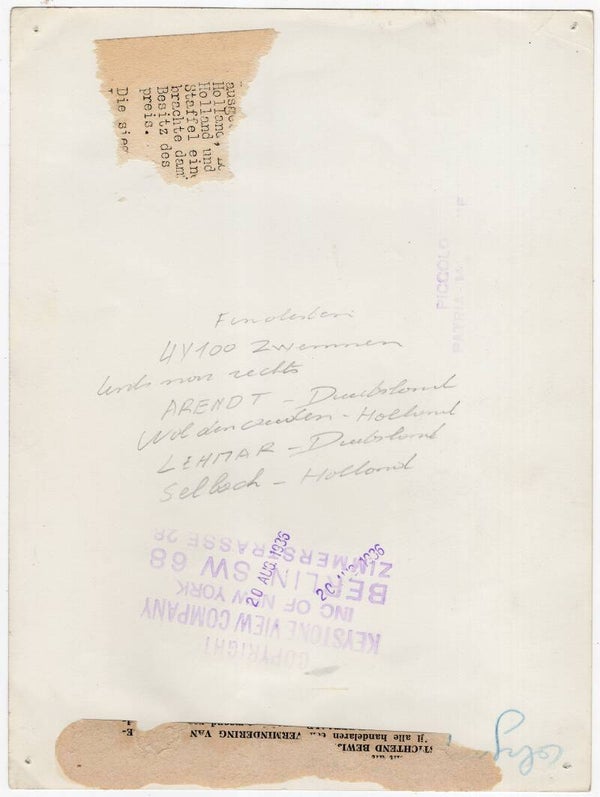 ausge
Holland,
Holland und
Staffel ein
brachte dam
Besitz des
preis.
Die sieg
PICCOLO
4 X 100 Zwemmen
links naar rechts
ARENDT - Duitsland
- Holland
LEHMAR - Duitsland
Selbach - Holland
20 AUG 1936
20 1936
COPYRIGHT
KEYSTONE VIEW COMPANY
INC OF NEW YORK
BERLIN SW 68
ZIMMERSTRASSE 28
STICHTEND BEWI
jl alle handelaren
VERMINDERING VAN
E-